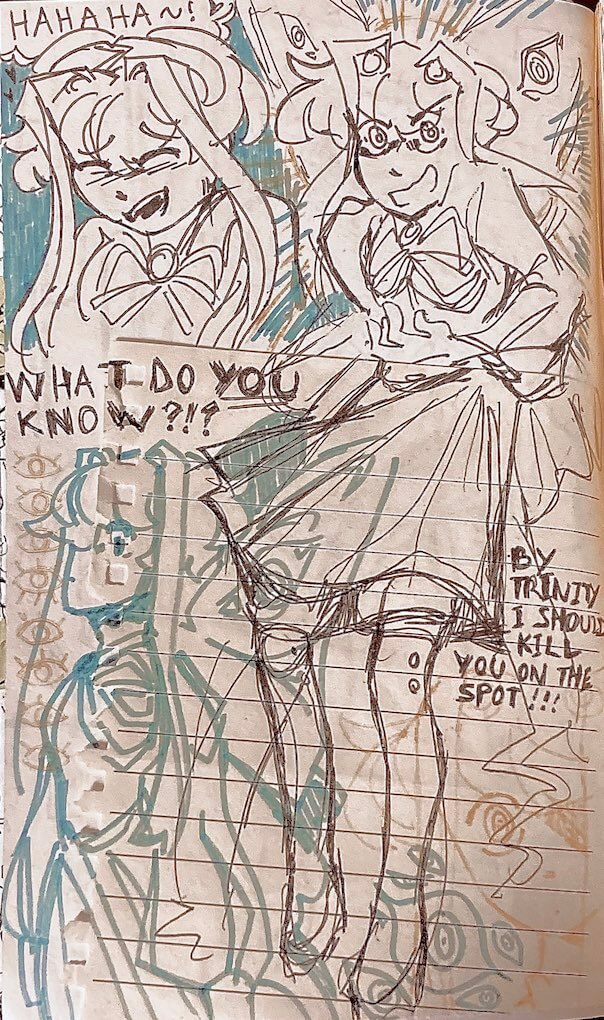 HAHAHA~!
WHAT DO YOU
KNOW?!?
BY
TRINITY
I SHOULD
KILL
YOU ON THE
SPOT!!!